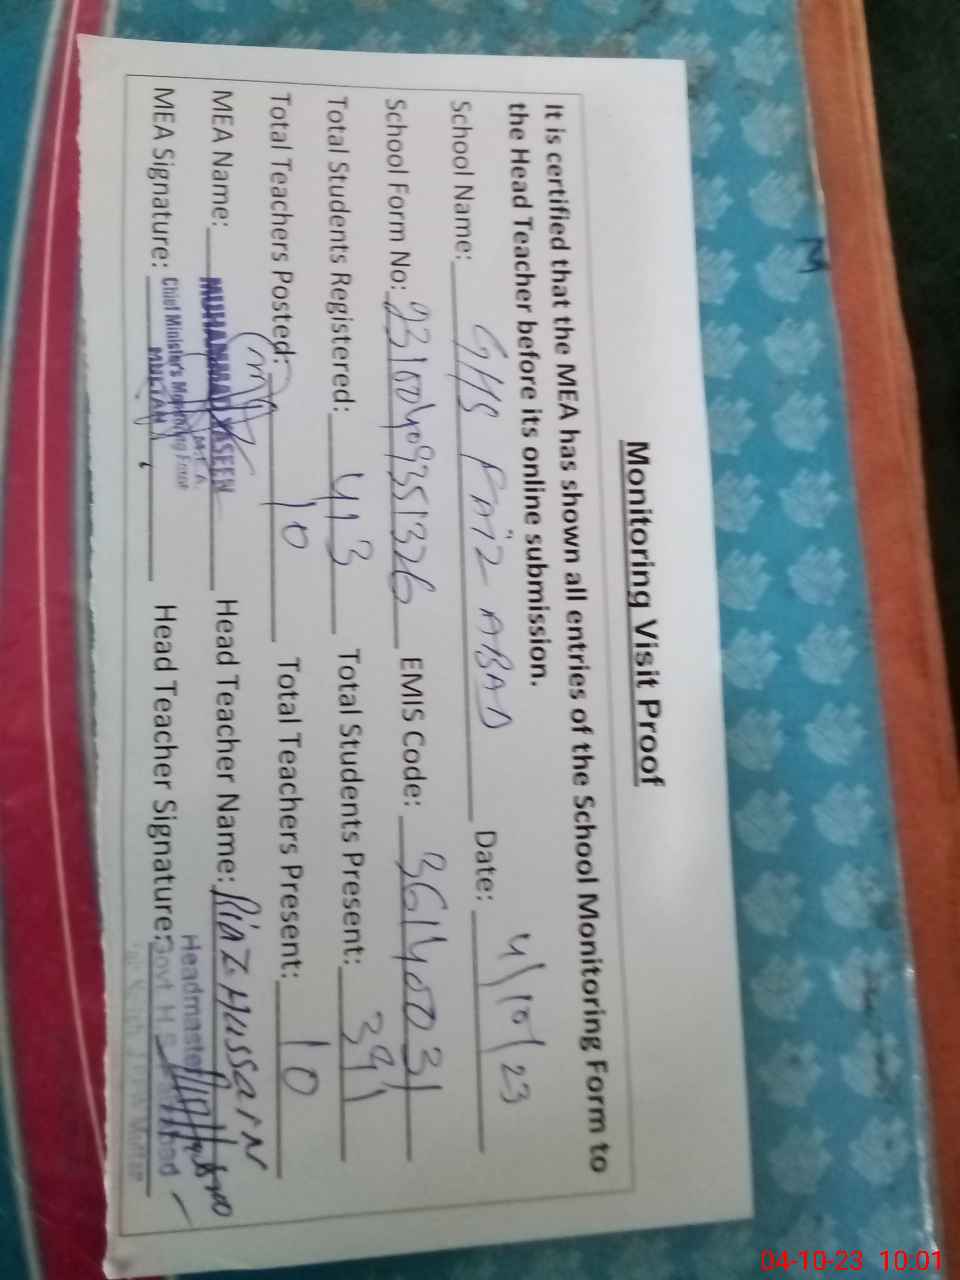 Monitoring Visit Proof
It is certified that the MEA has shown all entries of the School Monitoring Form to
the Head Teacher before its online submission.
School Name: GHS FAIZ ABAD Date: 4/10/23
School Form No: 23100409351326 EMIS Code: 36140031
Total Students Registered: 413 Total Students Present: 391
Total Teachers Posted: 10 Total Teachers Present: 10
MEA Name: MUHAMMAD YASEEN Head Teacher Name: Riaz Hussain
M.E.A.
Chief Minister's Monitoring Force
MEA Signature: MULTAN Head Teacher Signature:
Headmaster
Govt. H.S. Abad
04-10-23 10:01